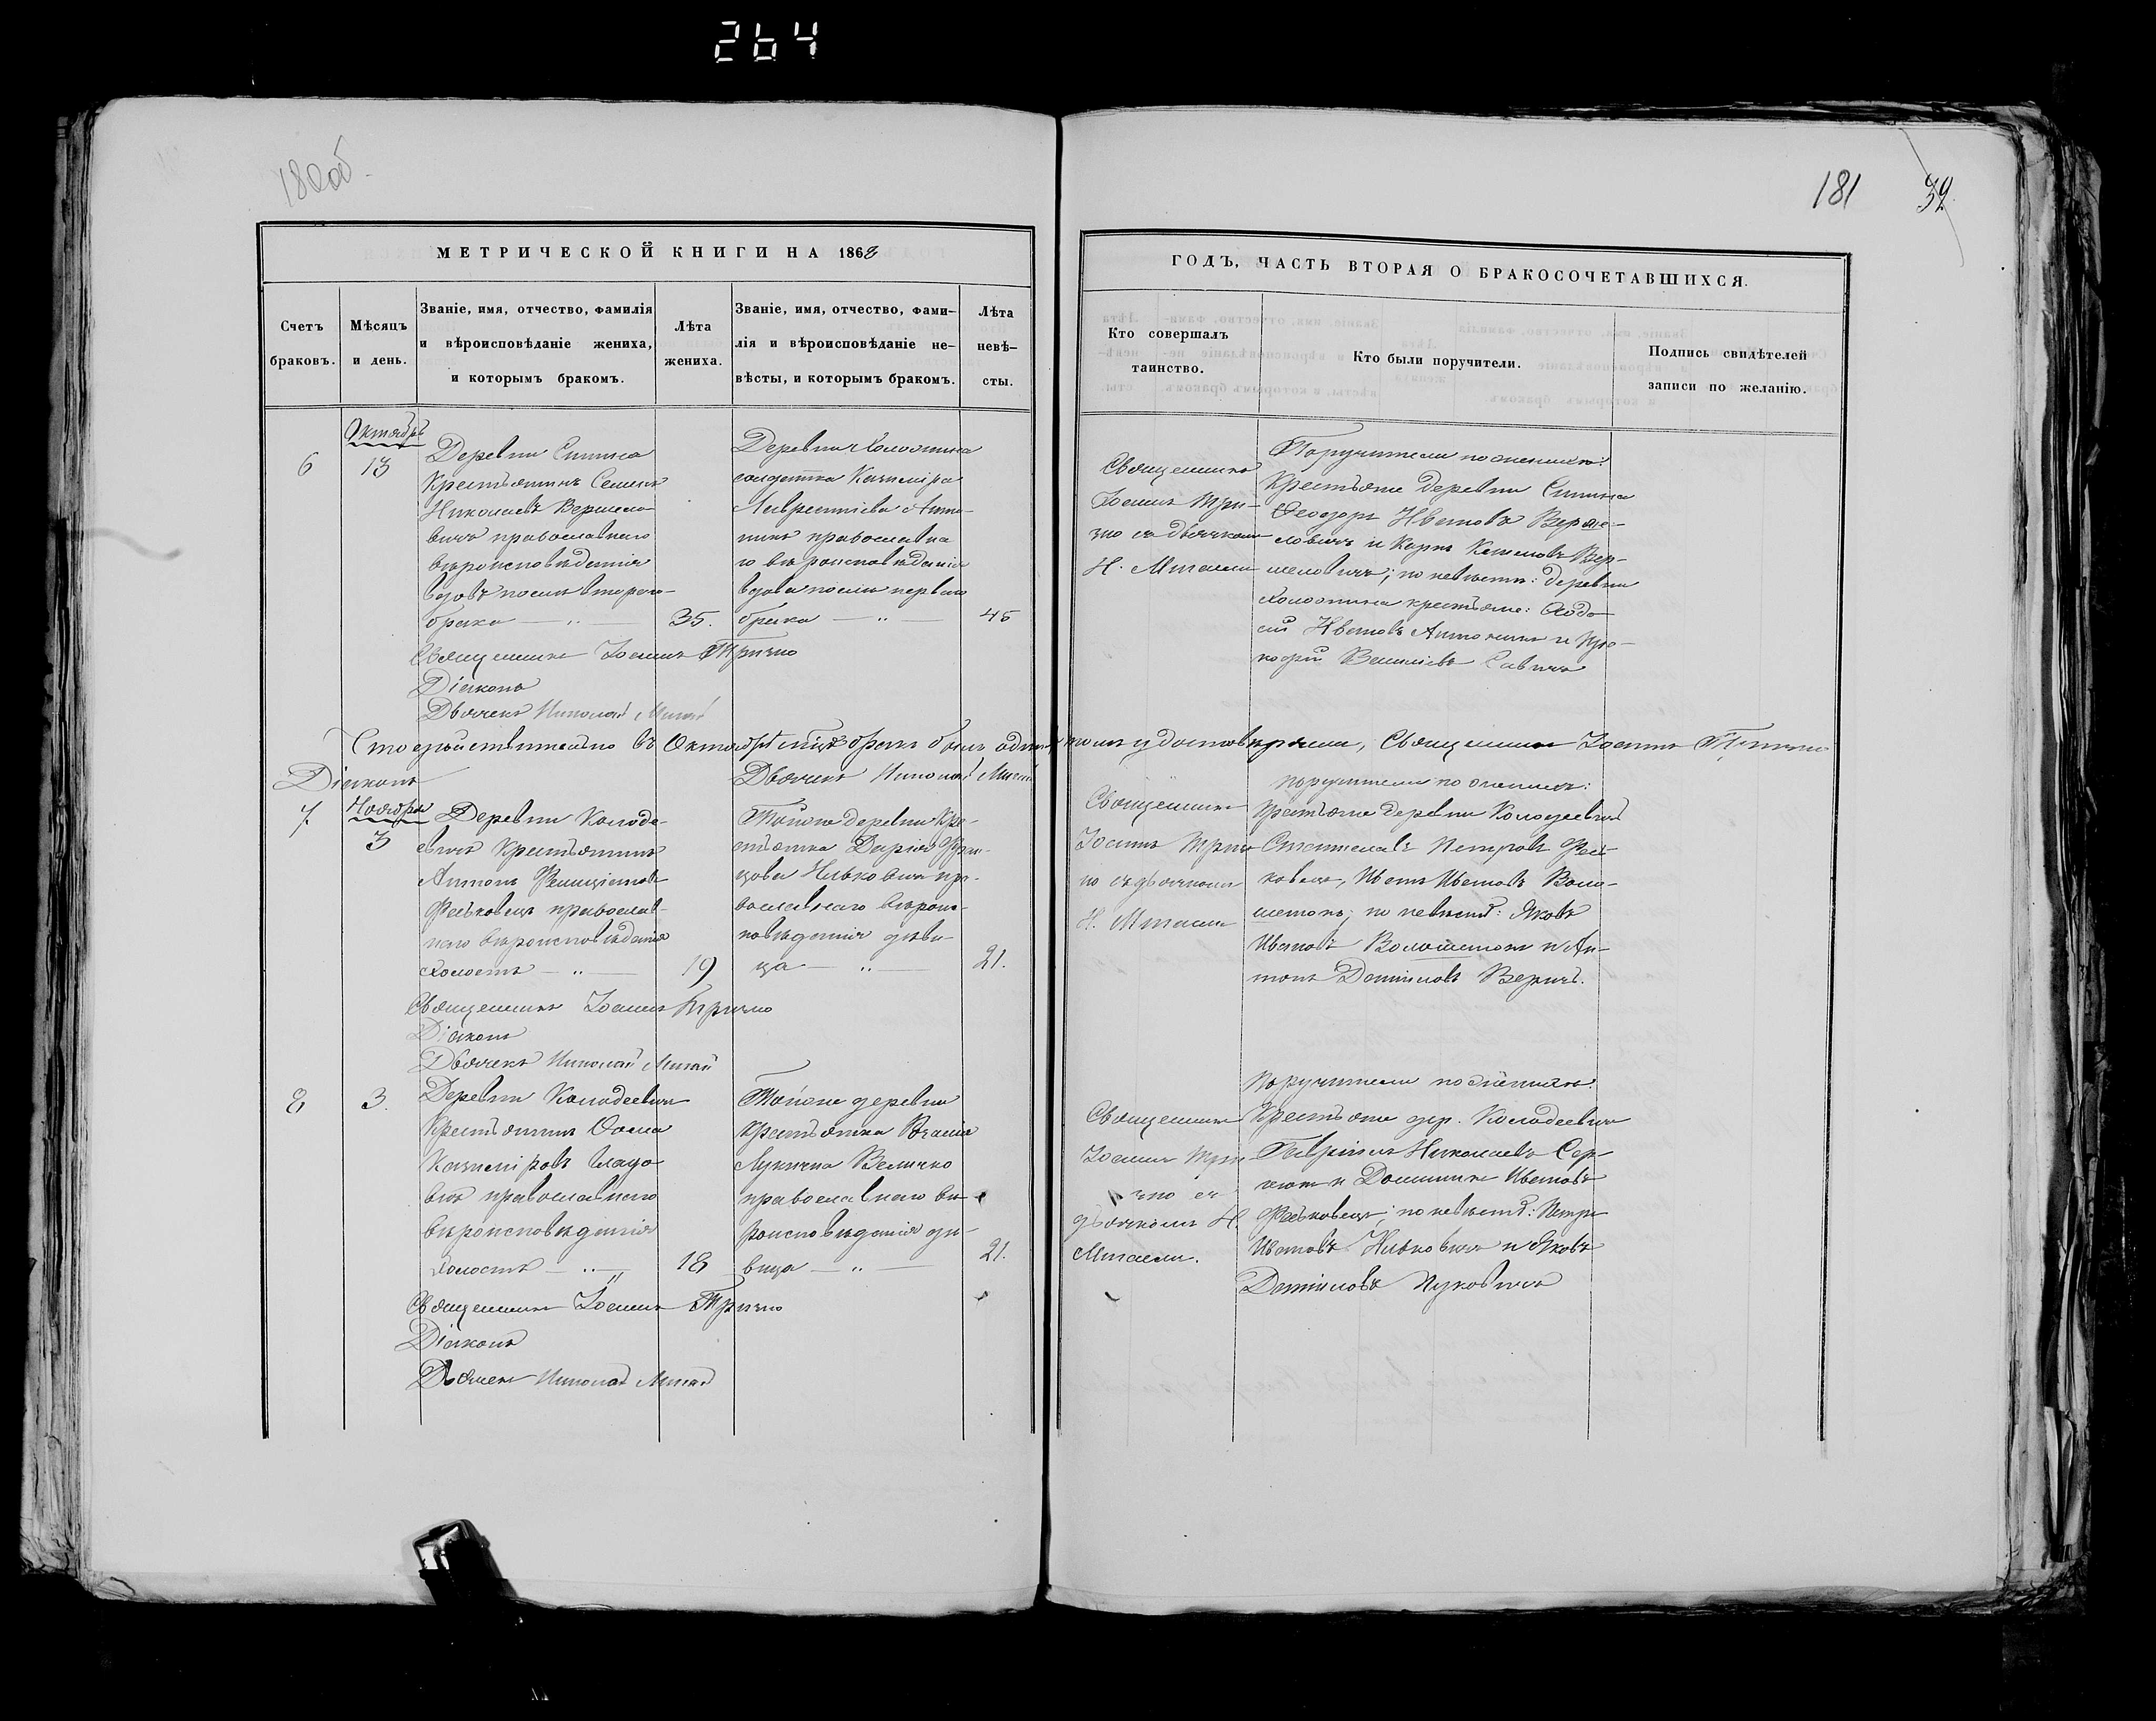 264
180об.
181 32
МЕТРИЧЕСКОЙ КНИГИ НА 1868
Счетъ браковъ.
Мѣсяцъ и день.
Званіе, имя, отчество, фамилія
и вѣроисповѣданіе жениха,
и которымъ бракомъ.
Лѣта жениха.
Званіе, имя, отчество, фами-
лія и вѣроисповѣданіе не-
вѣсты, и которымъ бракомъ.
Лѣта невѣ-
сты.
ГОДЪ, ЧАСТЬ ВТОРАЯ О БРАКОСОЧЕТАВШИХСЯ.
Кто совершалъ
таинство.
Кто были поручители.
Подпись свидѣтелей
записи по желанію.
6
Октябрь
13
Деревни
Крестьянинъ Семенъ
Николаевъ Вержело-
вичъ православнаго
вѣроисповѣданія
вдовъ послѣ втораго
брака
35.
Деревни
солдатка Казимира
Лаврентіева Анто-
никъ православна
го вѣроисповѣданія
вдова послѣ перваго
брака
45
Священникъ
Іоаннъ Три-
зно съ дьячкомъ
Н. Мигаемъ
Поручители по женихѣ:
Крестьяне деревни
Феодоръ Ивановъ Верже-
ловичъ и Карпъ
Вер-
желовичъ; по невѣстѣ: деревни
крестьяне:
Ивановъ Антоникъ и Про-
кофій Савичъ
Священникъ Іоаннъ Тризно
Діаконъ
Дьячекъ Николай Мигай
Что дѣйствительно въ Октябрѣ мѣцѣ бракъ былъ одинъ, въ томъ удостовѣряемъ, Священникъ Іоаннъ Тризно
Діаконъ
Дьячекъ Николай Мигай
7.
Ноября
3
Деревни Колоде-
евичъ Крестьянинъ
Антонъ Фелиціановъ
Фаськовецъ православ-
наго вѣроисповѣданія
холостъ
19
Той же деревни Кре-
стьянка Дарія
Нивковичъ пра-
вославнаго вѣроис-
повѣданія дѣви-
ца
21.
Священникъ
Іоаннъ Триз-
но съ дьячкомъ
Н. Мигаемъ
поручители по женихѣ:
крестьяне деревни Колодеевичъ
Станиславъ Петровъ Фась-
ковецъ, Иванъ Ивановъ Воло-
шенокъ; по невѣстѣ: Яковъ
Ивановъ Волошенокъ и Ан-
тонъ Даниловъ Веричъ.
Священникъ Іоаннъ Тризно
Діаконъ
Дьячекъ Николай Мигай
8
3.
Деревни Колодеевичъ
Крестьянинъ Ѳома
Казиміровъ
вичъ православнаго
вѣроисповѣданія
холостъ
18
Той же деревни
крестьянка
Лукична Величко
православнаго вѣ-
роисповѣданія дѣ-
вица
21.
Священникъ
Іоаннъ Три-
зно съ
дьячкомъ Н.
Мигаемъ.
Поручители по женихѣ:
Крестьяне дер. Колодеевичъ
Гавріилъ Николаевъ
и Доминикъ Ивановъ
Фаськовецъ; по невѣстѣ: Петръ
Ивановъ Нивковичъ и Яковъ
Даниловъ Жуковичъ
Священникъ Іоаннъ Тризно
Діаконъ
Дьячекъ Николай Мигай